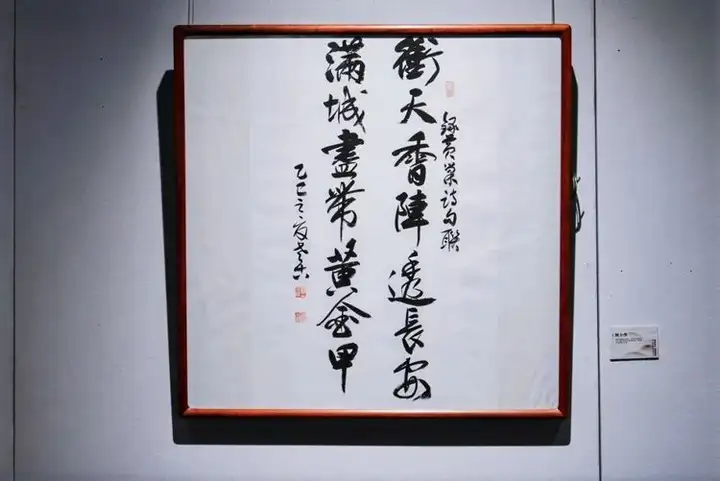 衝天香陣透長安
錄黃巢詩句聯
滿城盡帶黃金甲
乙巳之夏